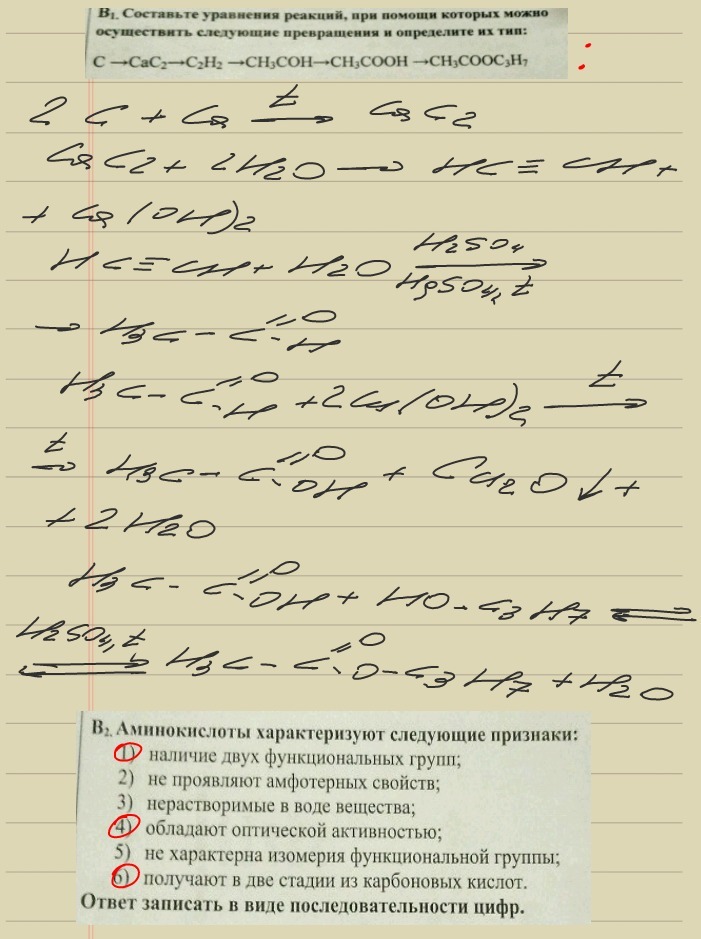 B₁. Составьте уравнения реакций, при помощи которых можно
осуществить следующие превращения и определите их тип:
C →CaC₂→C₂H₂ →CH₃COH→CH₃COOH →CH₃COOC₃H₇
2 C + Ca t→ CaC₂
CaC₂ + 2H₂O → HC≡CH +
+ Ca(OH)₂
HC≡CH + H₂O H₂SO₄ HgSO₄, t →
→ H₃C-C=O -H
H₃C-C=O -H +2Cu(OH)₂ t→
t→ H₃C-C=O -OH + Cu₂O↓ +
+ 2H₂O
H₃C-C=O -OH + HO-C₃H₇ ⇄
H₂SO₄, t ⇄ H₃C-C=O -O-C₃H₇ + H₂O
B₂. Аминокислоты характеризуют следующие признаки:
1) наличие двух функциональных групп;
2) не проявляют амфотерных свойств;
3) нерастворимые в воде вещества;
4) обладают оптической активностью;
5) не характерна изомерия функциональной группы;
6) получают в две стадии из карбоновых кислот.
Ответ записать в виде последовательности цифр.